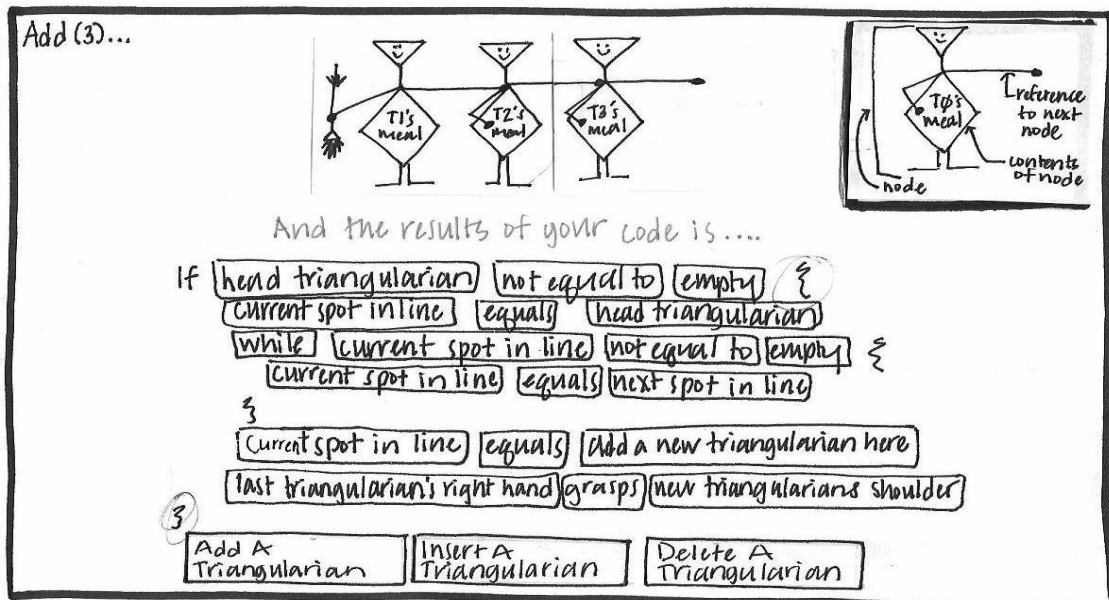 Add (3)...
T1's
meal
T2's
meal
T3's
meal
TØ's
meal
reference
to next
node
contents
of node
node
And the results of your code is....
If head triangularian not equal to empty {
current spot in line equals head triangularian
while current spot in line not equal to empty {
current spot in line equals next spot in line
}
Current spot in line equals add a new triangularian here
last triangularian's right hand grasps new triangularians shoulder
}
Add A
Triangularian
Insert A
Triangularian
Delete A
Triangularian